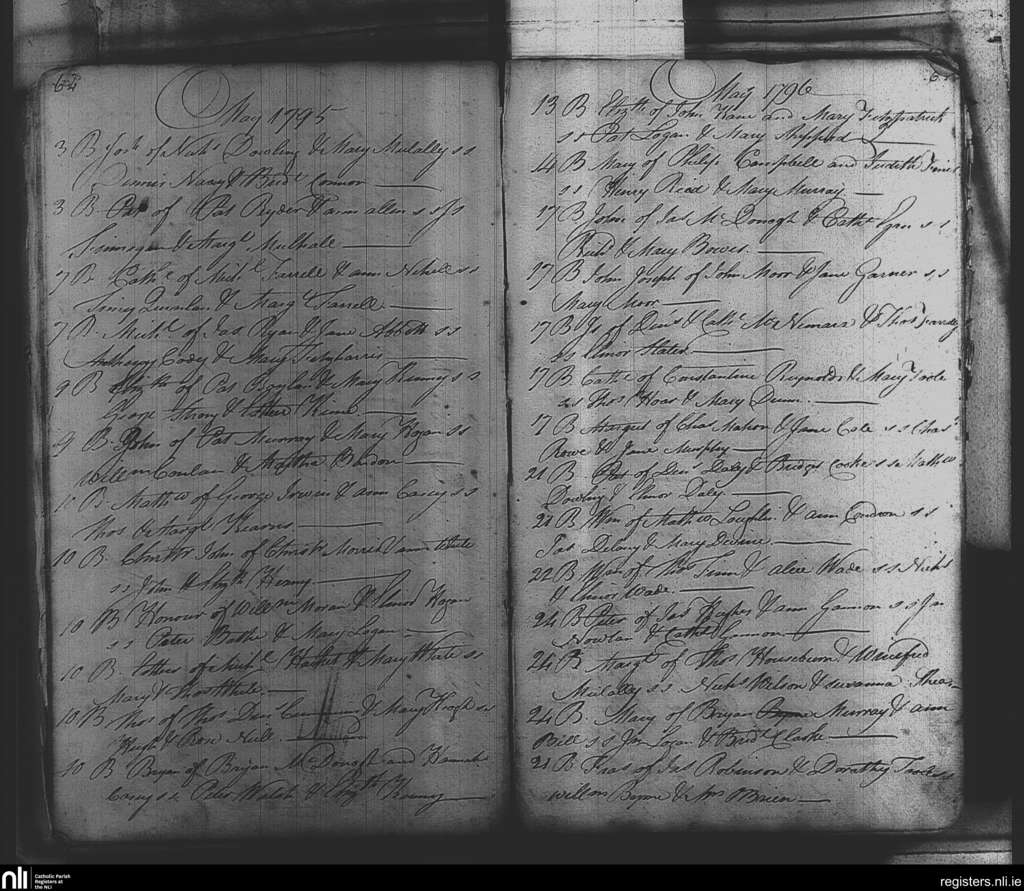 64
May 1795
3 B Josh of Nichs Dowling & Mary Mulally ss
Dinnis Nary & Bridt Connor
3 B Pat of Pat Ryder & ann allen ss Js
Finnegan & Margt Mulhall
7 B Cathe of Michl Farrell & ann Nihell ss
Quinlan & Margt Farrell
7 B Michl of Jas Ryan & Jane Abbott ss
Anthony Cody & Mary Fitzharris
9 B of Pat Boylan & Mary Kenny ss
George & Esther
9 B John of Pat Murray & Mary Hogan ss
Willm Conlan & Martha
10 B Mathw of George Irwin & ann Casey ss
Thos & Margt Kearns
10 B John of Christr Morris & ann White
ss John & Elizth Heany
10 B Honour of Willm Moran & Elinor Hogan
ss Peter & Mary Logan
10 B Esther of Michl & Mary White ss
Mary & Thos White
10 B Thos of Thos & Mary Keogh ss
Hugh & Rose
10 B Bryan of Bryan McDonogh and Hannah
Casey ss Peter Walsh & Elizth Kenny
May 1796
13 B Elizth of John Kane and Mary Fitzpatrick
ss Pat Logan & Mary Sheppard
14 B Mary of Philip Campbell and Judith
ss Henry Read & Mary Murray
17 B John of Jas McDonogh & Cathe Egan ss
Richd & Mary Bowes
17 B John Joseph of John Moor & Jane Garner ss
Mary Moor
17 B Js of Denis & Cathe McNemara & Thos Farrelly
ss Elinor Slater
17 B Cathe of Constantine Reynolds & Mary Toole
ss Thos Hoar & Mary Dunn
17 B Margt of Chas Mahon & Jane Cole ss Chas
Rowe & Jane Murphy
21 B Peter of Denis Daly & Bridget Cooke ss Mathw
Dowling & Elinor Daly
21 B Wm of Mathw Loughlin & ann Condron ss
Pat Delany & Mary
22 B Mary of Thos Finn & alice Wade ss Nichs
& Elinor Wade
24 B Peter of Jas Hughes & ann Gannon ss Jn
Nowlan & Cathe Gannon
24 B Margt of Thos Houseburn & Winefred
Mulally ss Nichs Wilson & Susanna Shea
24 B Mary of Bryan Murray & ann
Bell ss Jn Logan & Bridt Clarke
21 B Fras of Jas Robinson & Dorothy ss
Willm Byrne & Mrs OBrien
nli
Catholic Parish
Registers at
the NLI
registers.nli.ie